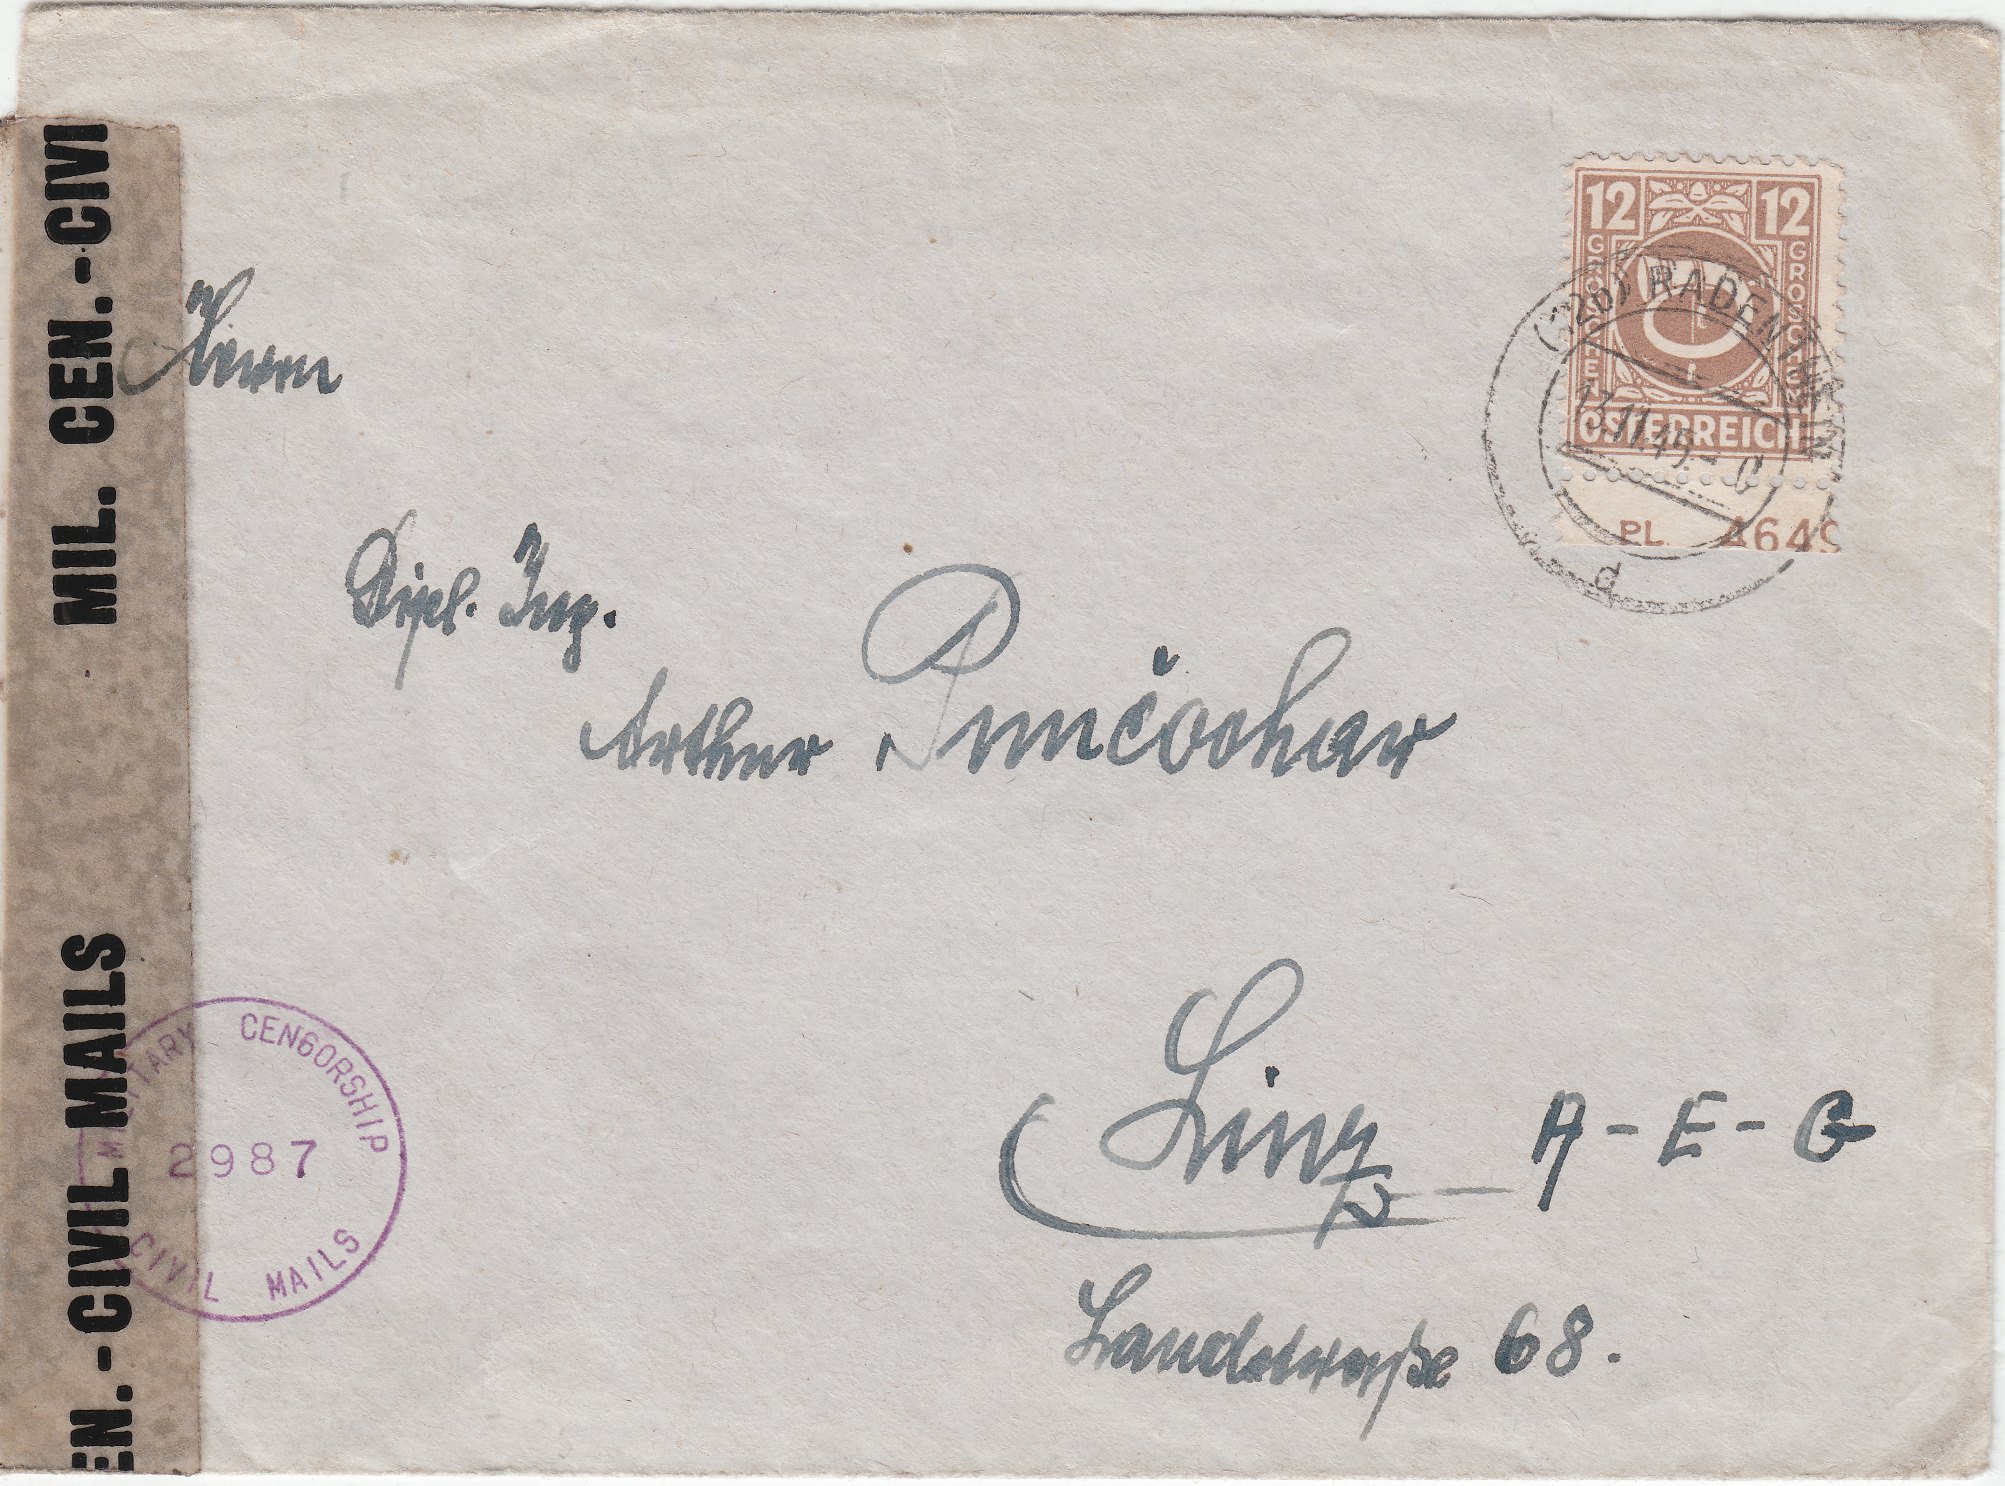 MIL. CEN.-CIVI
EN.-CIVIL MAILS
12 12
GROSCHEN GROSCHEN
ÖSTERREICH
PL. A649
RADENTHEIN
13.11.45
d
Herrn
Dipl. Ing.
Arthur
Linz A-E-G
Landstraße 68.
MILITARY CENSORSHIP
2987
CIVIL MAILS